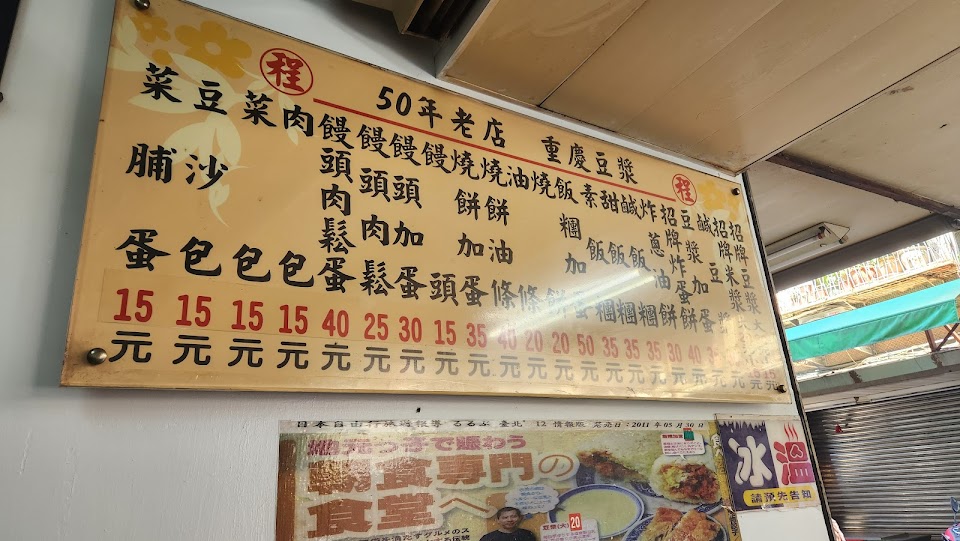 程 50年老店 重慶豆漿 程
招牌豆漿 大
招牌米漿
鹹豆漿
豆漿加蛋
招牌炸蛋餅 40元
炸蔥油餅 30元
鹹飯糰 35元
甜飯糰 35元
素飯糰 35元
飯糰加蛋 50元
燒餅 20元
油條 20元
燒餅油條 40元
燒餅加蛋 35元
饅頭 15元
饅頭加蛋 30元
饅頭肉鬆 25元
饅頭肉鬆蛋 40元
肉包 15元
菜包 15元
豆沙包 15元
菜脯蛋 15元
るるぶ 臺北'12 情報版 2011年05月30日
で賑わう
朝食専門の
食堂へ
豆漿(大) 20
冰 溫
請預先告知